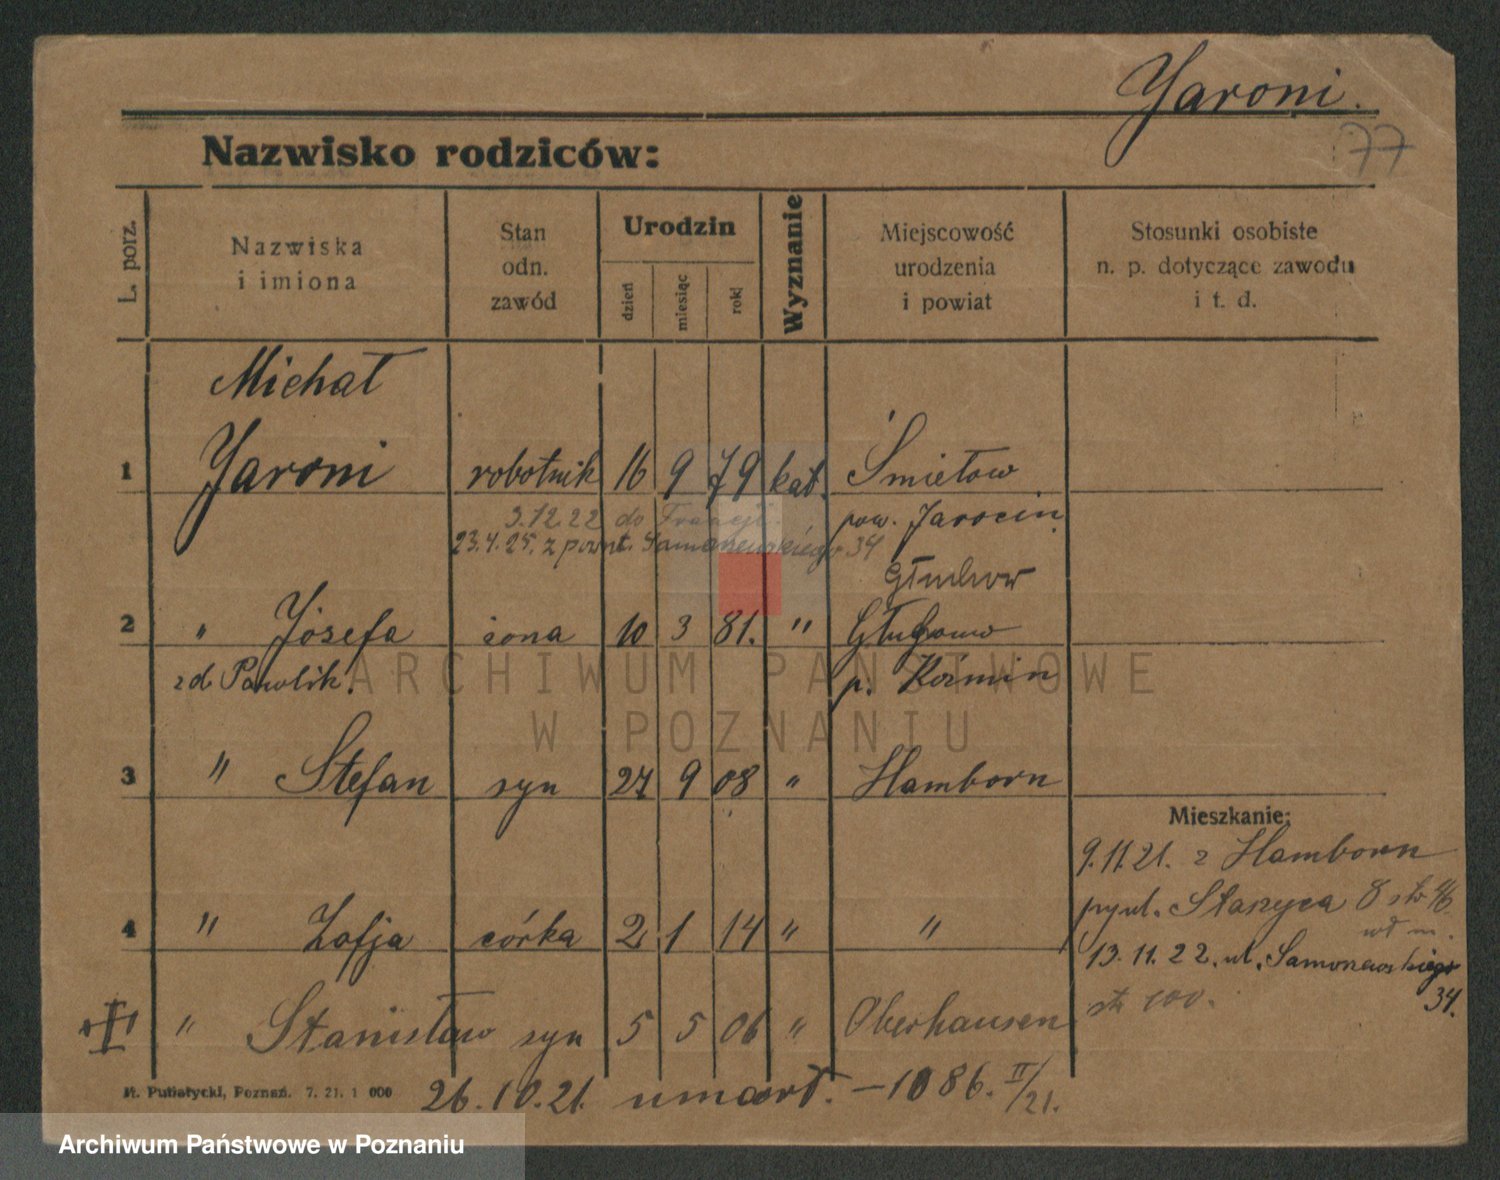 Yaroni.
77
Nazwisko rodziców:
L. porz.
Nazwiska
i imiona
Stan
odn.
zawód
Urodzin
dzień
miesiąc
rok
Wyznanie
Miejscowość
urodzenia
i powiat
Stosunki osobiste
n. p. dotyczące zawodu
i t. d.
Michał
1 Yaroni robotnik 16 9 79 kat. Śmiełow
3.12.22 do Francji. pow. Jarocin
23.4.25. z powr. 34
Głuchow
2 " Józefa żona 10 3 81. "
zd Pawlik. p. Kozmin
3 " Stefan syn 27 9 08 " Hamborn
Mieszkanie:
9.11.21. z Hamborn
przy ul. Staszyca 8
4 " Zofja córka 2 1 14 " "
13.11.22. ul. Samorzewskiego
34.
str 100.
" Stanisław syn 5 5 06 " Oberhausen
St. Putiatycki, Poznań. 7. 21. 1 000
26.10.21. umarł. – 1086. II/21.
ARCHIWUM PAŃSTWOWE
W POZNANIU
Archiwum Państwowe w Poznaniu